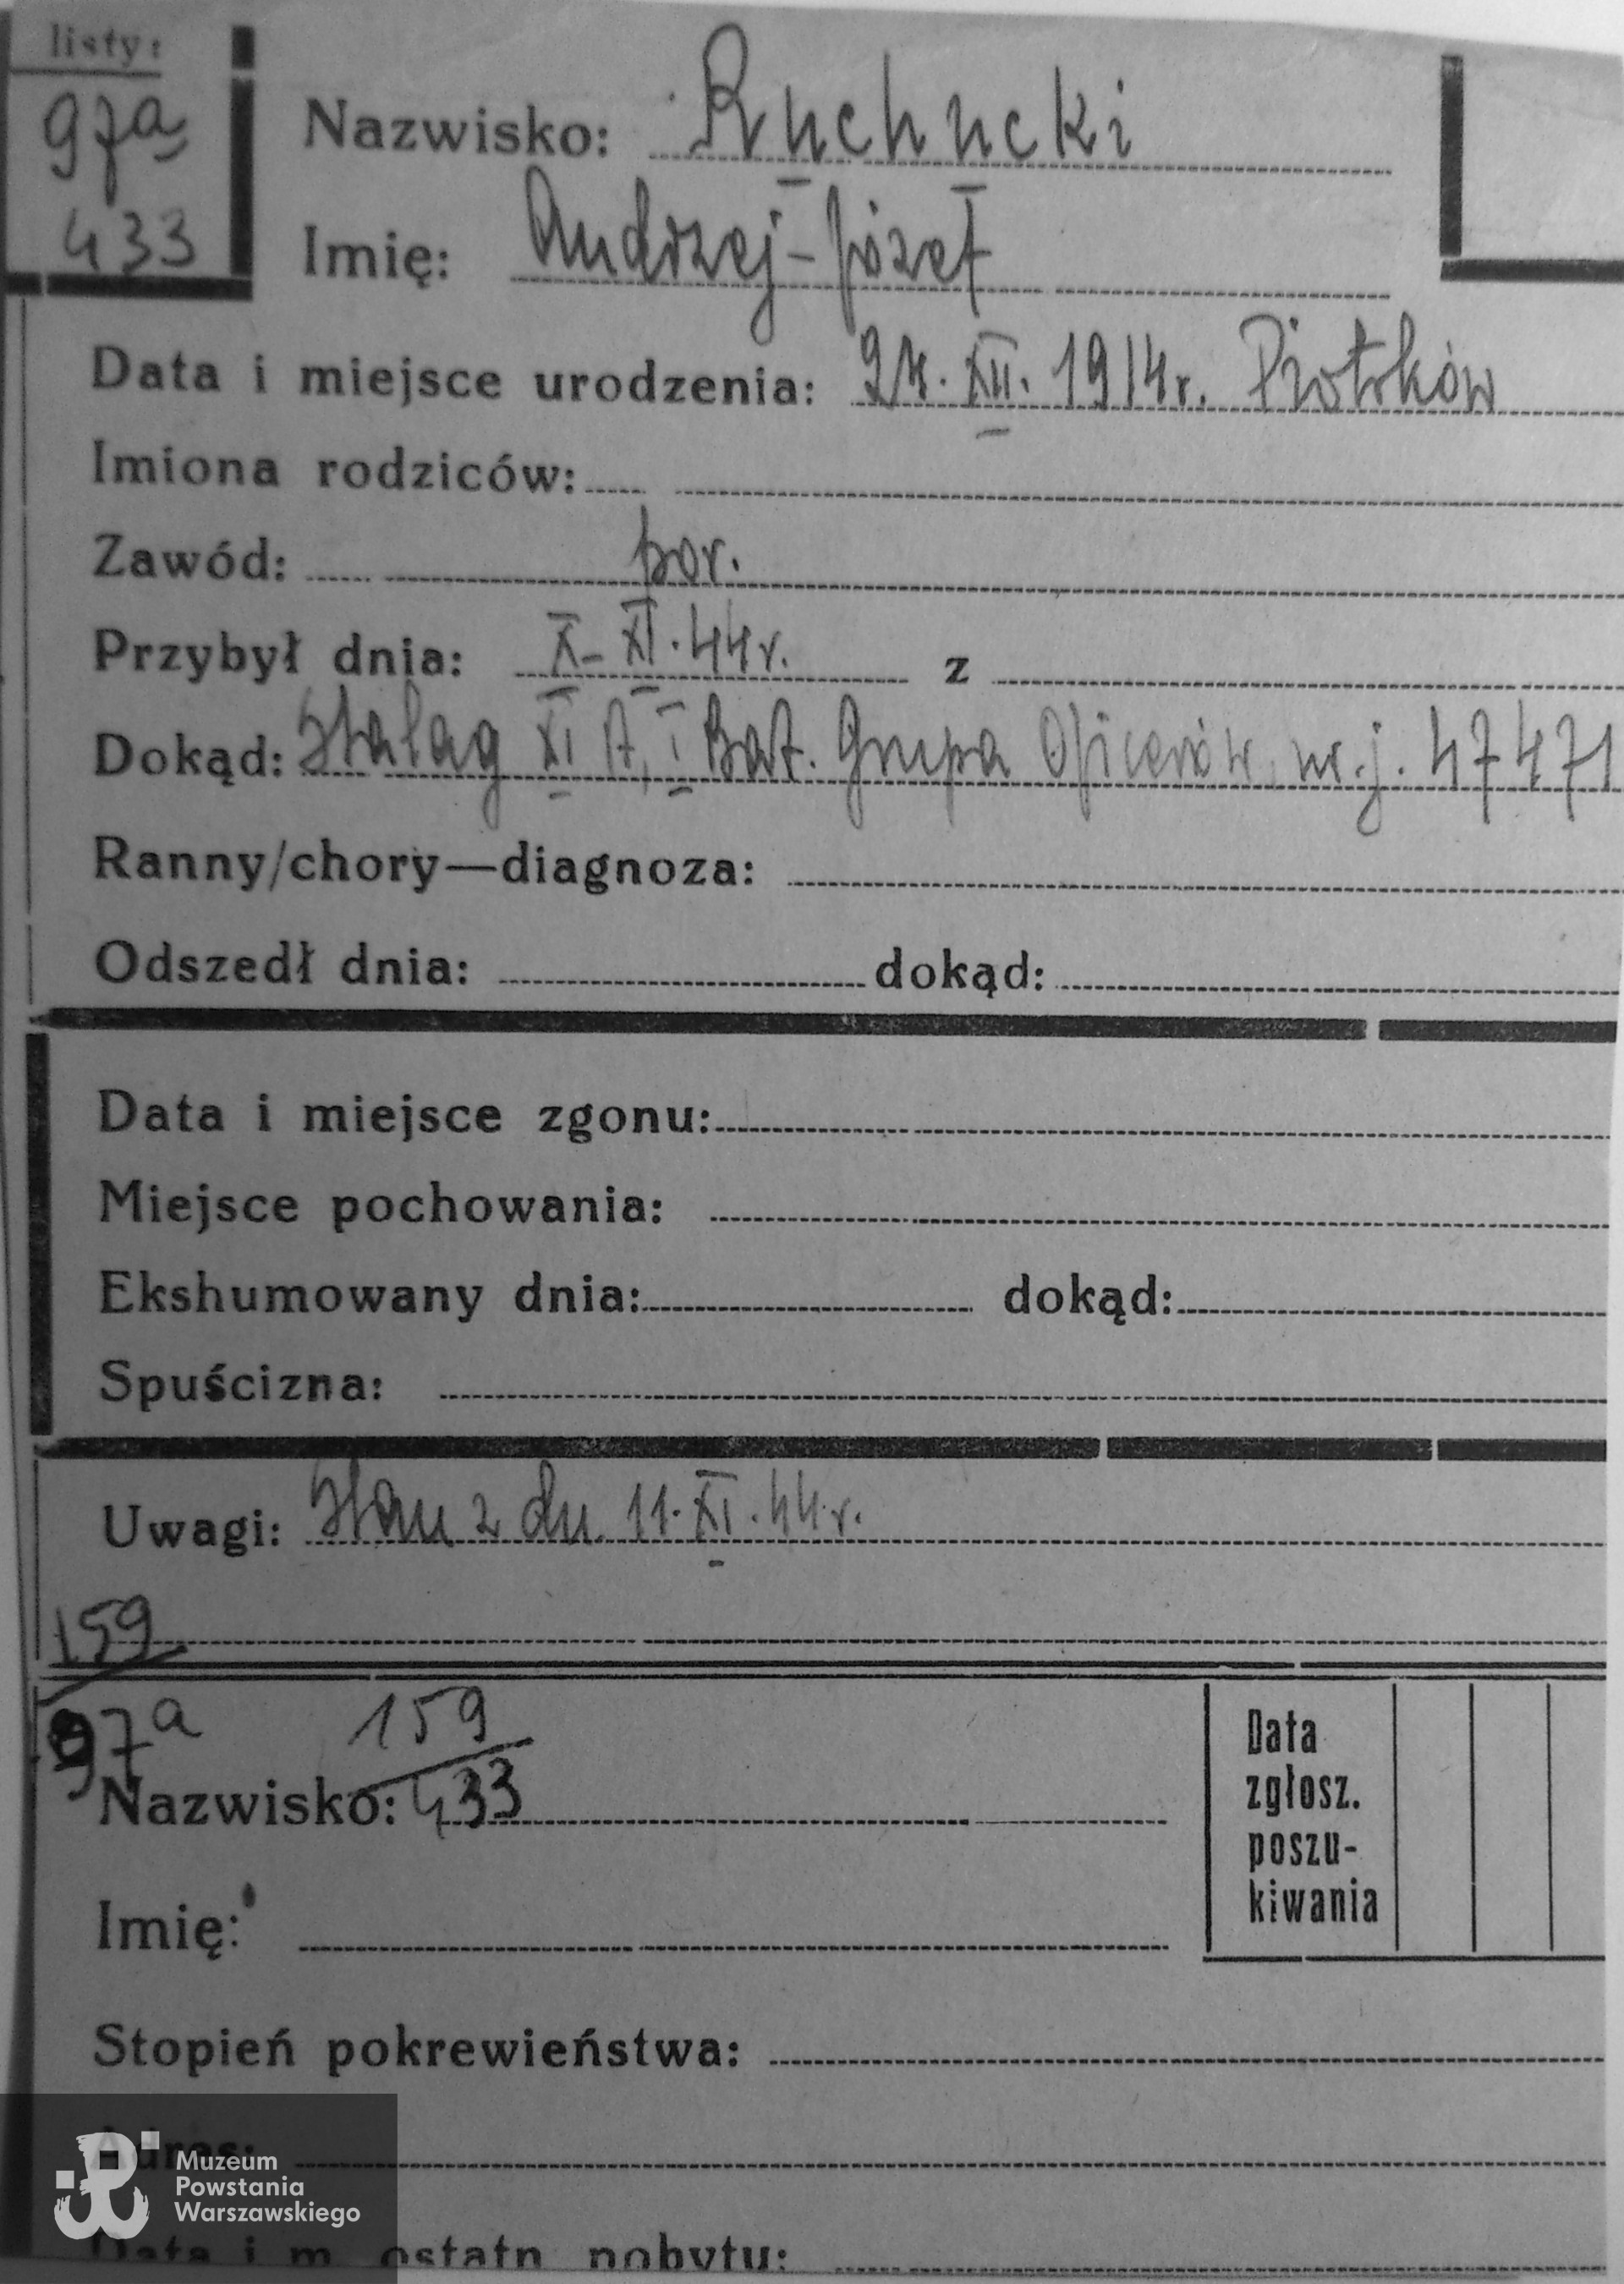 listy:
97a
433
Nazwisko: Ruchucki
Imię: Andrzej-Józef
Data i miejsce urodzenia: 24. XII. 1914r. Piotrków
Imiona rodziców:
Zawód: por.
Przybył dnia: X-XI.44r. z
Dokąd: Stalag XI A, I Bat. Grupa Oficerów, nr. j. 47471
Ranny/chory—diagnoza:
Odszedł dnia: dokąd:
Data i miejsce zgonu:
Miejsce pochowania:
Ekshumowany dnia: dokąd:
Spuścizna:
Uwagi: Stan z dn. 11.XI.44r.
159
97a 159
Nazwisko: 433
Imię:
Data
zgłosz.
poszu-
kiwania
Stopień pokrewieństwa:
Adres:
Muzeum
Powstania
Warszawskiego
Data i m. ostatn. pobytu: